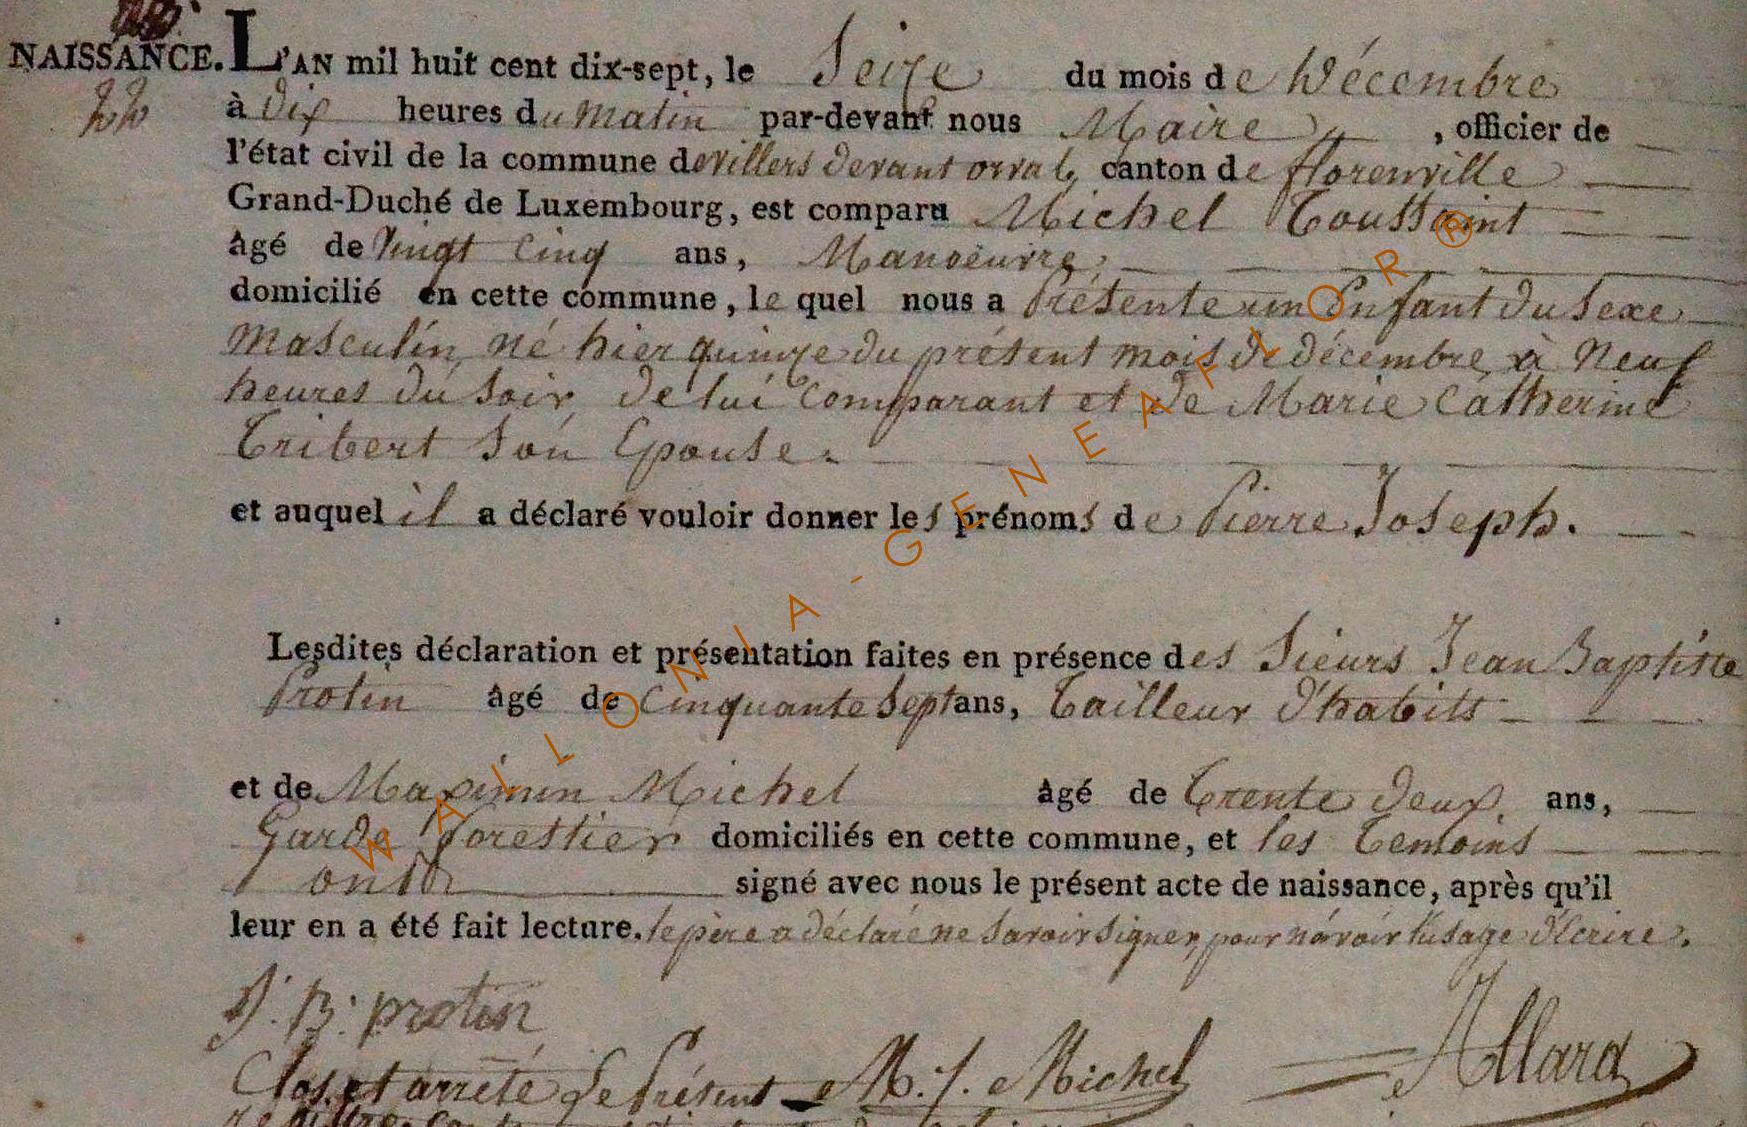 NAISSANCE. L'AN mil huit cent dix-sept, le Seize du mois de Décembre
à dix heures du matin par-devant nous Maire, officier de
l'état civil de la commune de villers devant orval, canton de florenville
Grand-Duché de Luxembourg, est comparu Michel Toussaint
âgé de Vingt Cinq ans, Manoeuvre,
domicilié en cette commune, le quel nous a Présenté un Enfant du Sexe
Masculin, né hier quinze du présent mois de décembre, à Neuf
heures du Soir, de lui Comparant et de Marie Catherine
Tribert Son Epouse.
et auquel il a déclaré vouloir donner les prénoms de Pierre Joseph.
Lesdites déclaration et présentation faites en présence des Sieurs Jean Baptiste
Protin âgé de Cinquante Sept ans, Tailleur d'habits
et de Maximin Michel âgé de Trente deux ans,
Garde forestier domiciliés en cette commune, et les Temoins
ont signé avec nous le présent acte de naissance, après qu'il
leur en a été fait lecture. le père a déclaré ne Savoir Signer, pour n'avoir l'usage d'Ecrire.
J. B. protin
Clos et arrêté Le Présent M. J. Michel Allard
WALLONIA-GENEAFLOR®